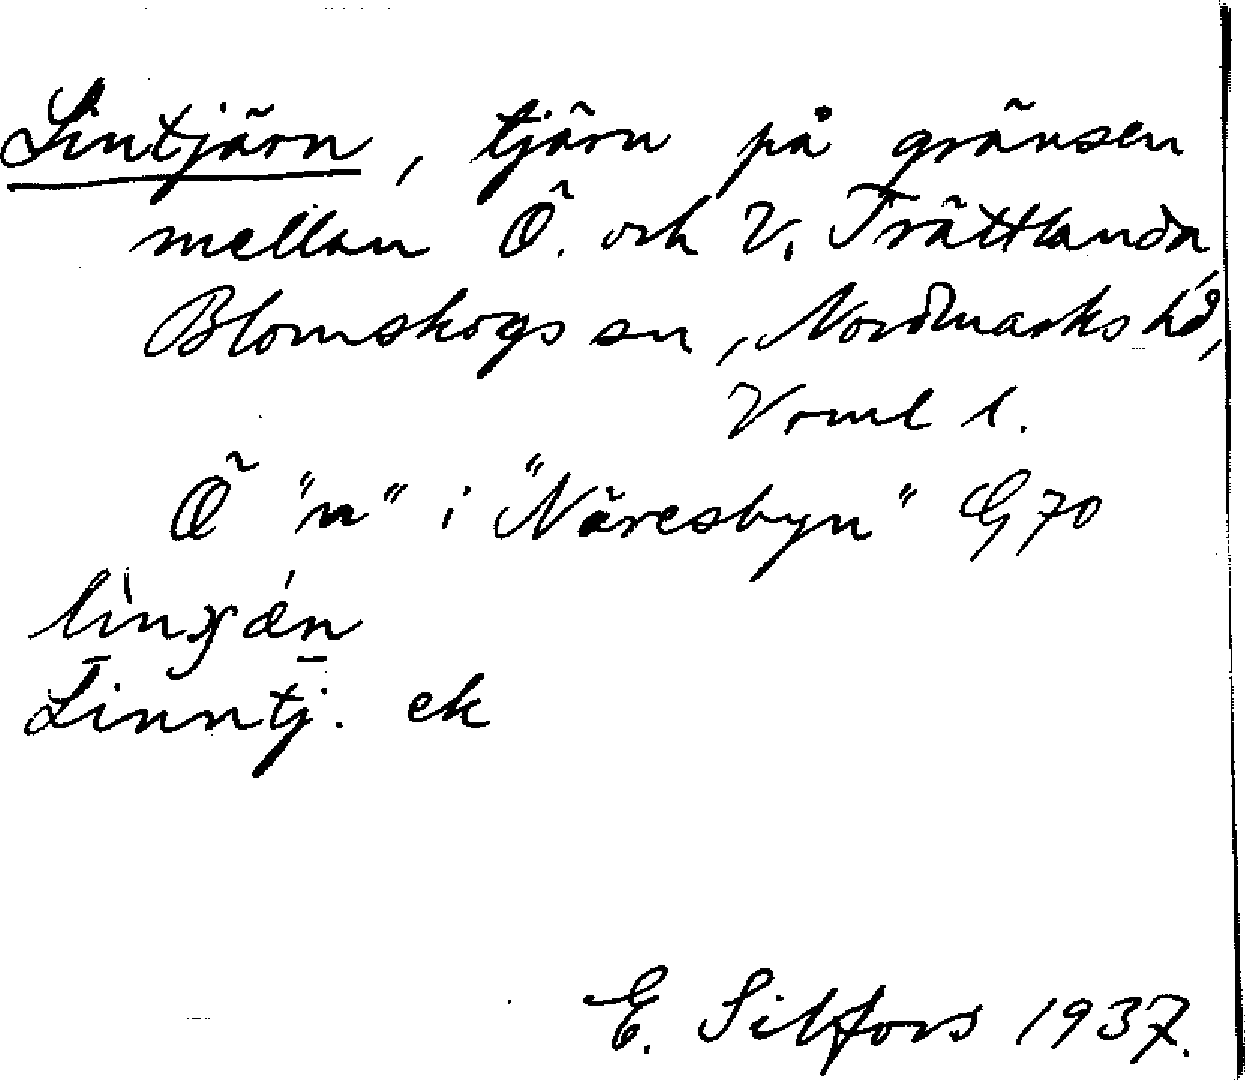 Lintjärn, tjärn på gränsen
mellan Ö. och V. Trättlanda,
Blomskogs sn, Nordmarks hd,
Vrml l.
Ö "n" i "Näresbyn" G 70
Linntj. ek
E. Silfors 1937.